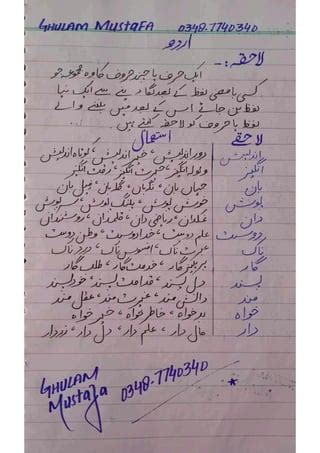 GHULAM MUSTAFA 0348-7740340
اردو
لاحقہ:-
ایک حرف یا چند حروف کا وہ مجموعہ جو
کسی بامعنی لفظ کے بعد لگا دینے سے ایک نیا
لفظ بن جاتے اس کے بعد میں بننے والے
لفظ یا حروف کو لاحقہ کہتے ہیں۔
لاحقے استعمال
اندیش دور اندیش، خیر اندیش، کوتاہ اندیش
انگیز ولولہ انگیز، حیرت انگیز، رقت انگیز
بان جہاں بان، نگہبان، گلہ بان، فیل بان
پوش پوش، پلنگ پوش، سر پوش
دان نمکدان، ریاضی دان، قلمدان، روشندان
دوست علم دوست، خدا دوست، وطن دوست
ناک عبرت ناک، افسوس ناک، درد ناک
گار پرہیز گار، خدمت گار، طلب گار
پسند دل پسند، قدامت پسند، خود پسند
مند دانش مند، غیرت مند، عقل مند
خواہ بدخواہ، خاطر خواہ، خیر خواہ
دار مال دار، علم دار، دل دار، زردار
GHULAM Mustafa 0348-7740340